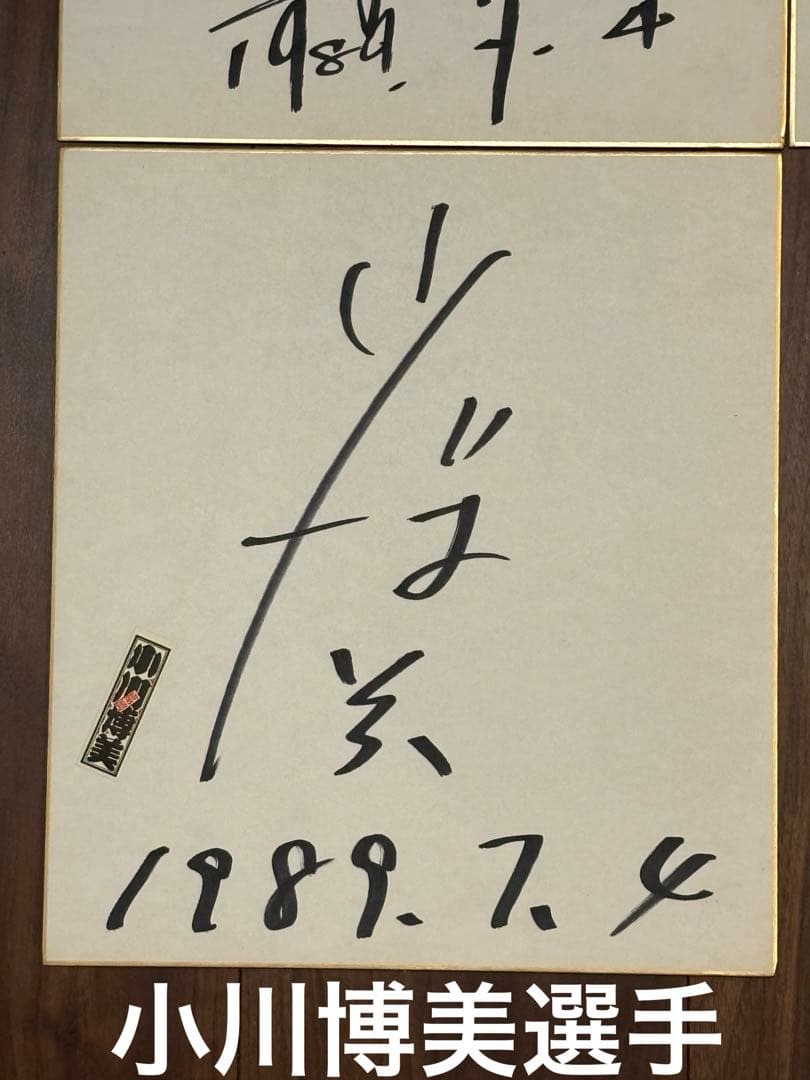 1989. 7. 4
小川博美
小川博美
1989. 7. 4
小川博美選手